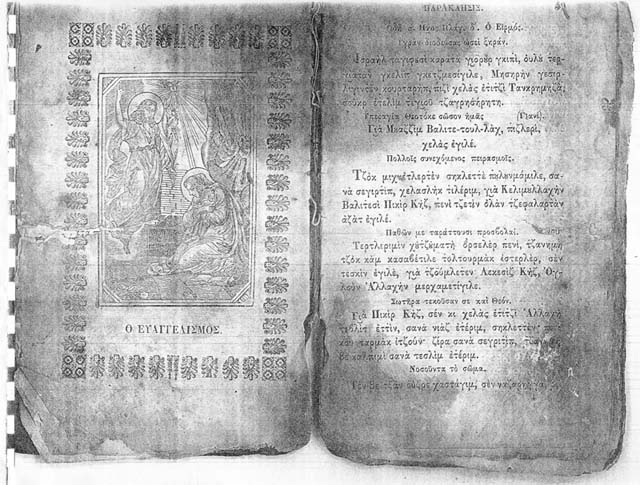 Ο ΕΥΑΓΓΕΛΙΣΜΟΣ.
ΠΑΡΑΚΛΗΣΙΣ.
Ὠδὴ α. Ἦχος Πλάγ. δ΄. Ὁ Εἱρμός.
Ὑγρὰν διοδεύσας ὡσεὶ ξηράν.
Ἰσραὴλ ταγιφασὶ καρατὰ γιορὸὺρ γκιπὶ,
γιατὰν γκελὶπ γκετζμεσίγιλε, Μησηρὴν
κουρταρὴπ, πιζὶ χελὰς ἐτιτζὶ Τανκρημηζὰ;
σούκρ ἐτελὶμ τέγιου τζαγρησήρητη.
Ὑπεραγία Θεοτόκε σῶσον ἡμᾶς (Γιανί).
Γιὰ Μααζζὶμ Βαλιτε-τουλ-λὰχ, πιζλερὶ,
χελὰς ἐγιλέ.
Πολλοῖς συνεχόμενος πειρασμοῖς.
Τζὸκ μιχνετλερτὲν σηκλεττὲ σα-
νὰ σεγιρτὶπ, χελασλὴκ τιλέριμ, γιὰ Κελιμουλλαχὴν
Βαλιτεσὶ Πικὶρ Κὴζ, πενὶ τζετὲν ὀλὰν τζεφαλαρτὰν
ἀζὰτ ἐγιλέ.
Παθῶν με ταράττουσι προσβολαί.
Τερτλεριμὶν χουτζουματὴ ὀρσελὲρ πενὶ, τζανημὴ
τζὸκ κὰμ κασαβέτιλε τολτουρμὰκ ἰστερλὲρ, σὲν
τεσκὶν ἐγιλὲ, γιὰ τζουμλετὲν Λεκεσὶζ Κὴζ, Ὀγ-
λοὺν Ἀλλαχὴν μερχαμετίγιλε.
Σωτῆρα τεκοῦσαν σε καὶ Θεόν.
Γιὰ Πικὶρ Κὴζ, σὲν κι χελὰς ἐτιτζὶ Ἀλλαχὴ
τεβλὶτ ἐττὶν, σανὰ νιὰζ ἐτέριμ, σηκλεττὲν
κὰν ταρμὰκ ἰτζοὺν· ζίρα σανὰ σεγριτὶπ,
βὲ καλπιμὶ σανὰ τεσλὶμ ἐτέριμ.
Νοσοῦντα τὸ σῶμα.
χασταγὶμ, σὲν